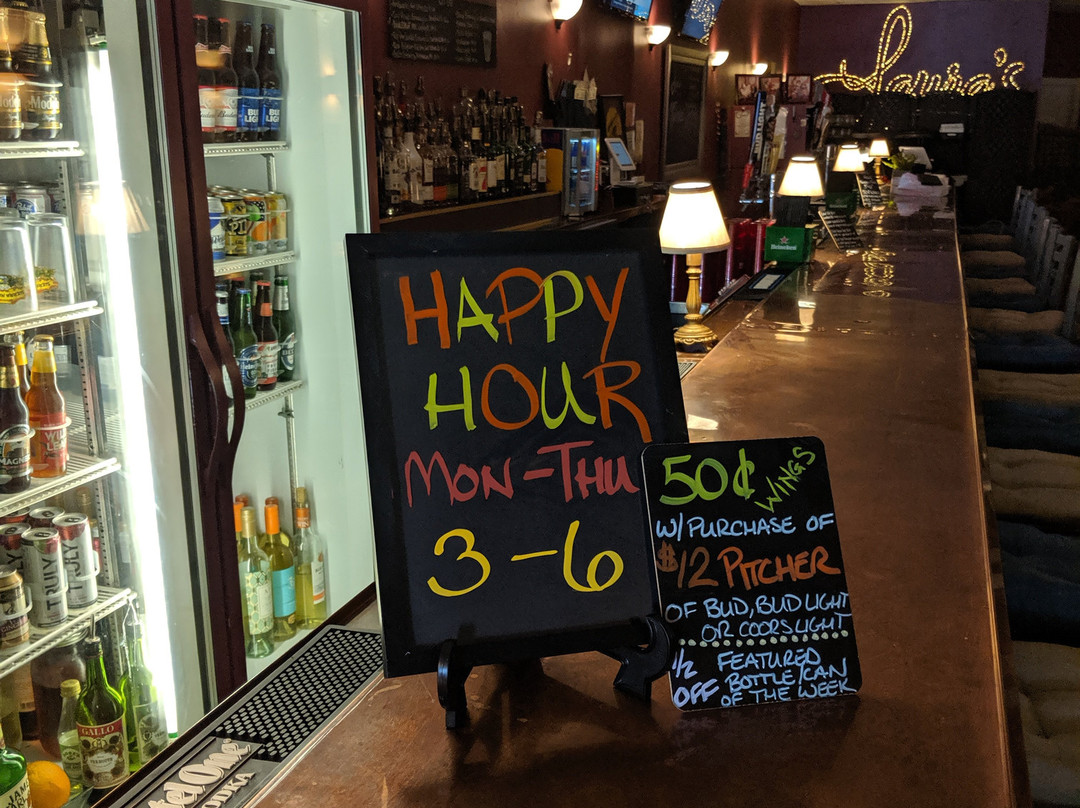 Sanna's
HAPPY
HOUR
MON-THU
3-6
50¢ WINGS
W/PURCHASE OF
$12 PITCHER
OF BUD, BUD LIGHT
OR COORS LIGHT
1/2 OFF
FEATURED
BOTTLE/CAN
OF THE WEEK
BUD LIGHT
Heineken
TRULY
TRULY
GALLO
VODKA